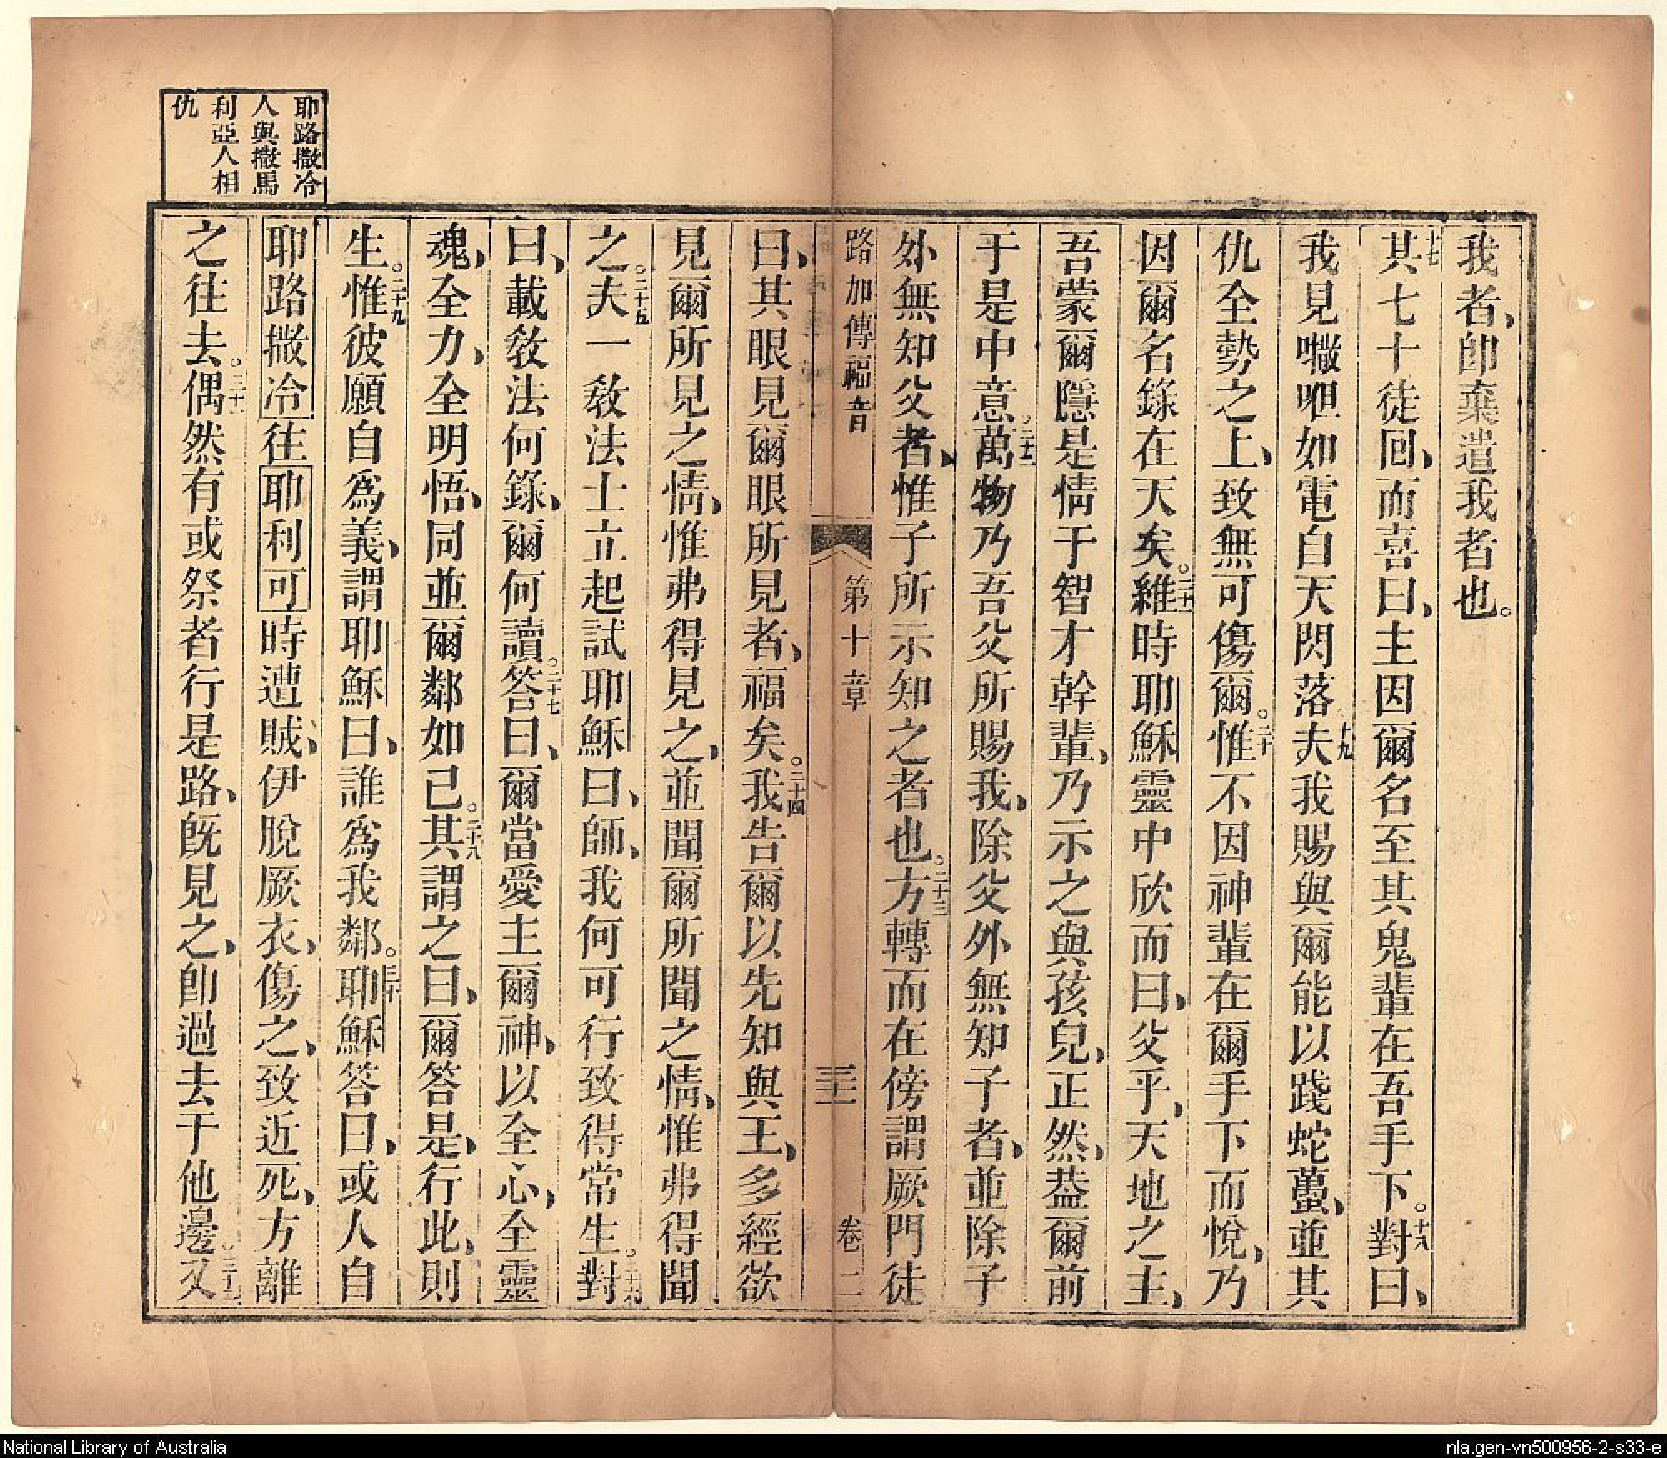 我者、卽棄遣我者也。
十七其七十徒回、而喜曰、主因爾名至其鬼輩在吾手下。十八對曰、
我見㘔呾如電自天閃落。十九夫我賜與爾能以踐蛇蠆、並其
仇全勢之上、致無可傷爾。二十惟不因神輩在爾手下而悅、乃
因爾名錄在天矣。二十一維時耶穌靈中欣而曰、父乎、天地之主、
吾蒙爾隱是情于智才幹輩、乃示之與孩兒、正然、葢爾前
于是中意。二十二萬物乃吾父所賜我、除父外無知子者、並除子
外無知父者、惟子所示知之者也。二十三方轉而在傍謂厥門徒
路加傳福音
第十章
三十一
卷二
曰、其眼見爾眼所見者、福矣。二十四我告爾以先知與王、多經欲
見爾所見之情、惟弗得見之、並聞爾所聞之情、惟弗得聞
之。二十五夫一敎法士立起試耶穌曰、師、我何可行致得常生。二十六對
曰、載敎法何錄、爾何讀。二十七答曰、爾當愛主爾神、以全心、全靈
魂、全力、全明悟、同並爾鄰如己。二十八其謂之曰、爾答是、行此、則
生。二十九惟彼願自爲義、謂耶穌曰、誰爲我鄰。三十耶穌答曰、或人自
耶路撒冷往耶利可時遭賊、伊脫厥衣、傷之、致近死、方離
之往去。三十一偶然有或祭者行是路、旣見之、卽過去于他邊。三十二又
耶路撒冷
人與撒馬
利亞人相
仇
National Library of Australia
nla.gen-vn500956-2-s33-e